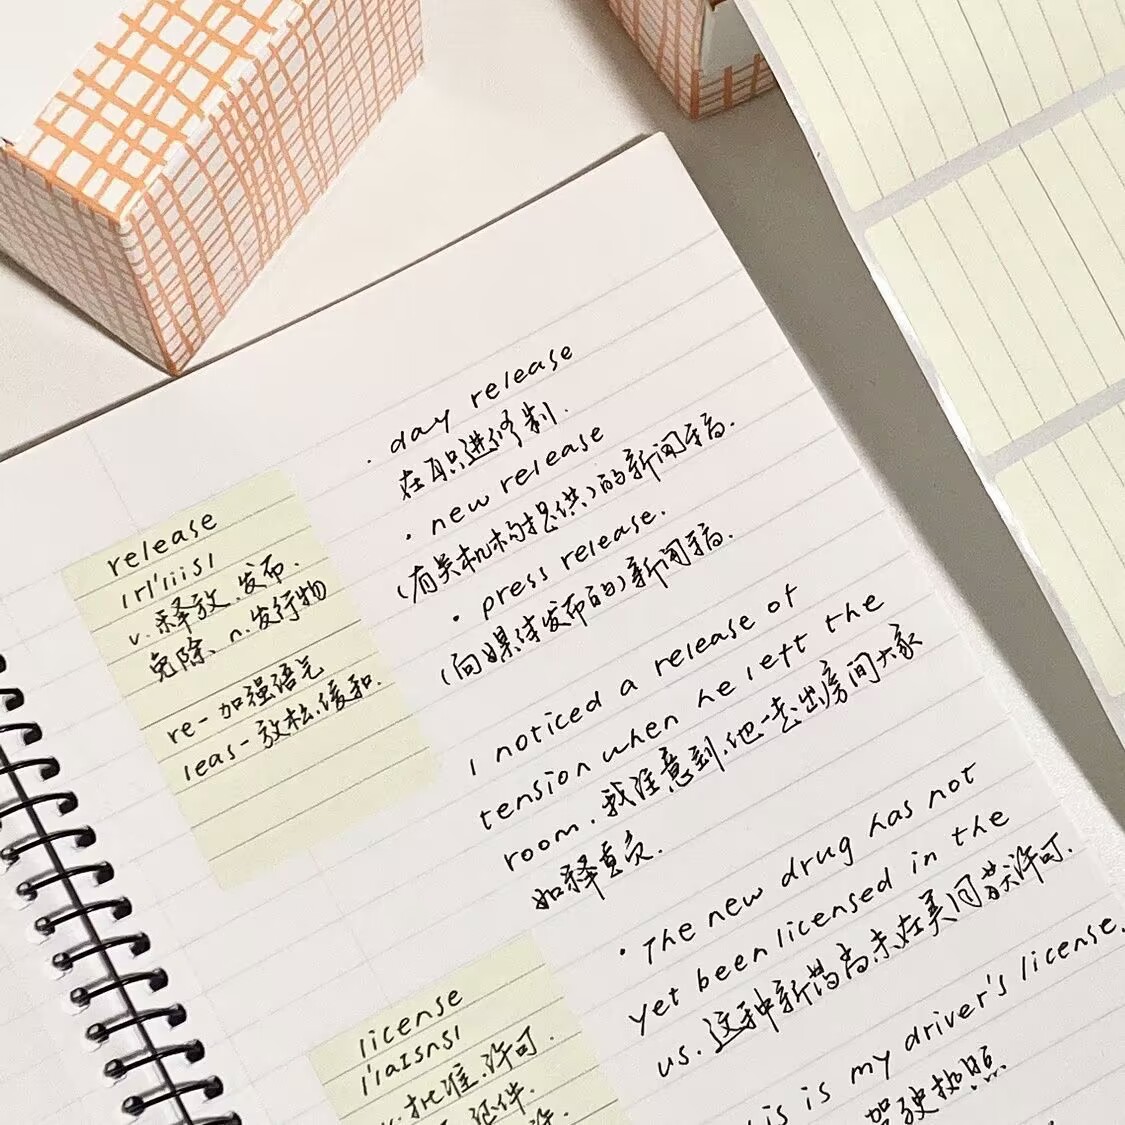 release
/rɪ'liːs/
v. 释放、发布.
免除、n. 发行物
re- 加强语气
leas- 放松.缓和.
· day release
在职进修制.
· new release
(有关机构提供)的新闻稿.
· press release.
(向媒体发布的)新闻稿.
I noticed a release of
tension when he left the
room. 我注意到.他一走出房间大家
如释重负.
license
/'laɪsns/
v. 批准.许可.
证件.
许.
· The new drug has not
yet been licensed in the
us. 这种新药尚未在美国获许可.
is is my driver's license.
驾驶执照